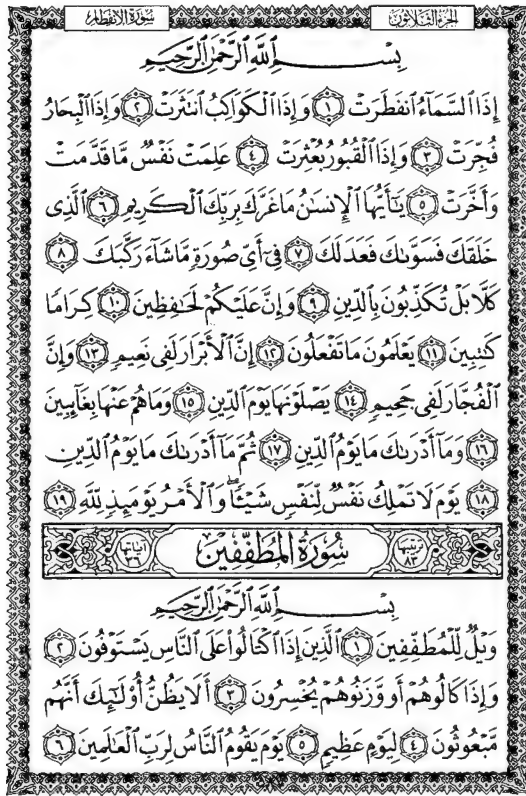 سُورَةُ الانفِطَار الجُزءُ الثَّلَاثُونَ
بِسْمِ ٱللَّهِ ٱلرَّحْمَٰنِ ٱلرَّحِيمِ
إِذَا ٱلسَّمَآءُ ٱنفَطَرَتْ ١ وَإِذَا ٱلْكَوَاكِبُ ٱنتَثَرَتْ ٢ وَإِذَا ٱلْبِحَارُ
فُجِّرَتْ ٣ وَإِذَا ٱلْقُبُورُ بُعْثِرَتْ ٤ عَلِمَتْ نَفْسٌ مَّا قَدَّمَتْ
وَأَخَّرَتْ ٥ يَٰٓأَيُّهَا ٱلْإِنسَٰنُ مَا غَرَّكَ بِرَبِّكَ ٱلْكَرِيمِ ٦ ٱلَّذِى
خَلَقَكَ فَسَوَّىٰكَ فَعَدَلَكَ ٧ فِىٓ أَىِّ صُورَةٍ مَّا شَآءَ رَكَّبَكَ ٨
كَلَّا بَلْ تُكَذِّبُونَ بِٱلدِّينِ ٩ وَإِنَّ عَلَيْكُمْ لَحَٰفِظِينَ ١٠ كِرَامًا
كَٰتِبِينَ ١١ يَعْلَمُونَ مَا تَفْعَلُونَ ١٢ إِنَّ ٱلْأَبْرَارَ لَفِى نَعِيمٍ ١٣ وَإِنَّ
ٱلْفُجَّارَ لَفِى جَحِيمٍ ١٤ يَصْلَوْنَهَا يَوْمَ ٱلدِّينِ ١٥ وَمَا هُمْ عَنْهَا بِغَآئِبِينَ
١٦ وَمَآ أَدْرَىٰكَ مَا يَوْمُ ٱلدِّينِ ١٧ ثُمَّ مَآ أَدْرَىٰكَ مَا يَوْمُ ٱلدِّينِ
١٨ يَوْمَ لَا تَمْلِكُ نَفْسٌ لِّنَفْسٍ شَيْـًٔا ۖ وَٱلْأَمْرُ يَوْمَئِذٍ لِّلَّهِ ١٩
ترتيبها ٨٣ سُورَةُ المُطَفِّفِينَ آياتها ٣٦
بِسْمِ ٱللَّهِ ٱلرَّحْمَٰنِ ٱلرَّحِيمِ
وَيْلٌ لِّلْمُطَفِّفِينَ ١ ٱلَّذِينَ إِذَا ٱكْتَالُوا۟ عَلَى ٱلنَّاسِ يَسْتَوْفُونَ ٢
وَإِذَا كَالُوهُمْ أَو وَّزَنُوهُمْ يُخْسِرُونَ ٣ أَلَا يَظُنُّ أُو۟لَٰٓئِكَ أَنَّهُم
مَّبْعُوثُونَ ٤ لِيَوْمٍ عَظِيمٍ ٥ يَوْمَ يَقُومُ ٱلنَّاسُ لِرَبِّ ٱلْعَٰلَمِينَ ٦